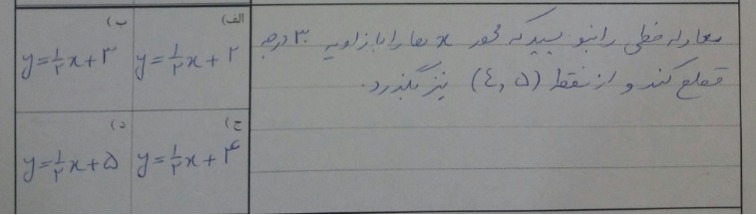 معادله خطی را بنویسید که محور x ها را با زاویه ۳۰ درجه
قطع کند و از نقطه (۴,۵) نیز بگذرد.
الف) y=½x+۲
ب) y=½x+۳
ج) y=½x+۴
د) y=½x+۵